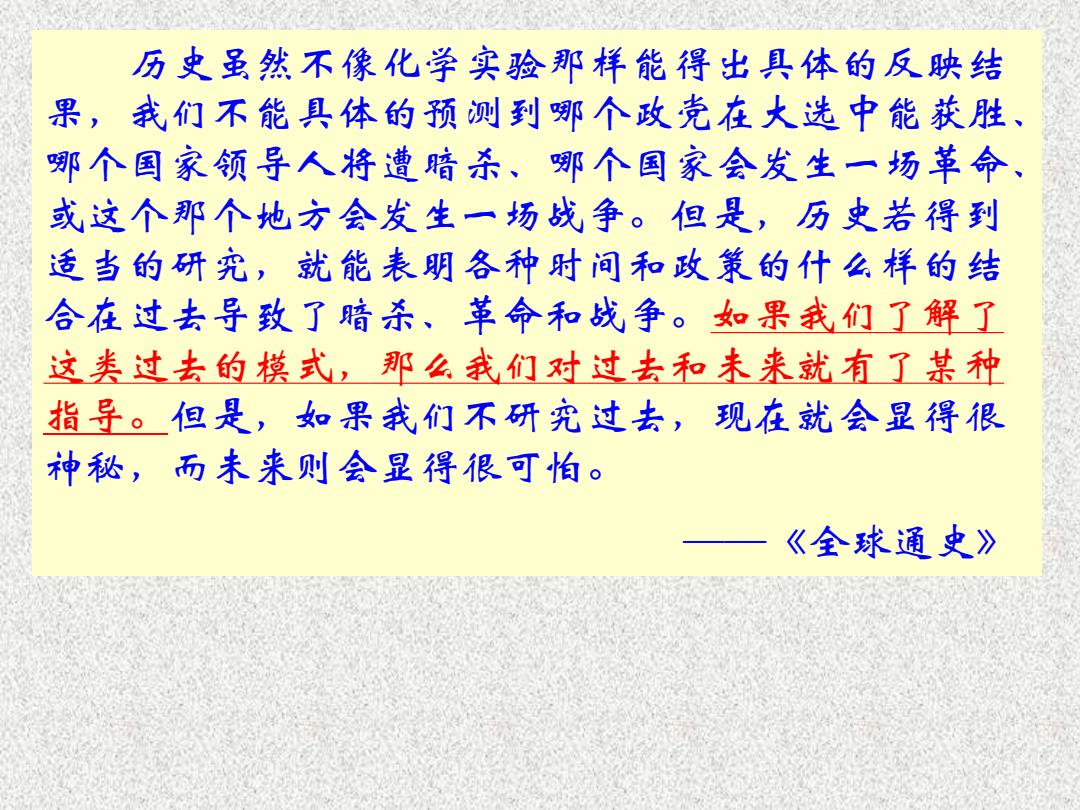 历史虽然不像化学实验那样能得出具体的反映结
果，我们不能具体的预测到哪个政党在大选中能获胜、
哪个国家领导人将遭暗杀、哪个国家会发生一场革命、
或这个那个地方会发生一场战争。但是，历史若得到
适当的研究，就能表明各种时间和政策的什么样的结
合在过去导致了暗杀、革命和战争。如果我们了解了
这类过去的模式，那么我们对过去和未来就有了某种
指导。但是，如果我们不研究过去，现在就会显得很
神秘，而未来则会显得很可怕。
——《全球通史》